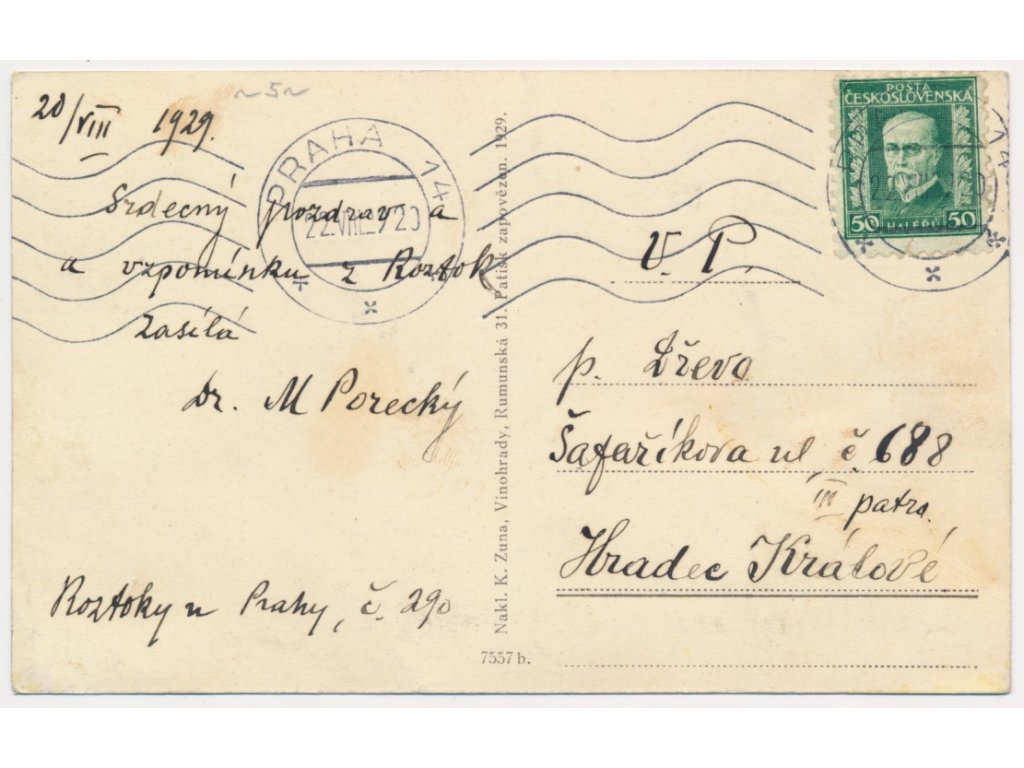 ~5~
20/VIII 1929.
Srdečný pozdrav a
a vzpomínku z Roztok
zasílá
Dr. M Porecký
Roztoky u Prahy, č. 290
PRAHA 14
22.VIII.29 20
Nakl. K. Zuna, Vinohrady, Rumunská 31. Patisk zapovězen. 1929.
7557 b.
POŠTA
ČESKOSLOVENSKÁ
50 HALÉŘŮ 50
14
V. P.
p. Dřevo
Šafaříkova ul č 688
III patro.
Hradec Králové